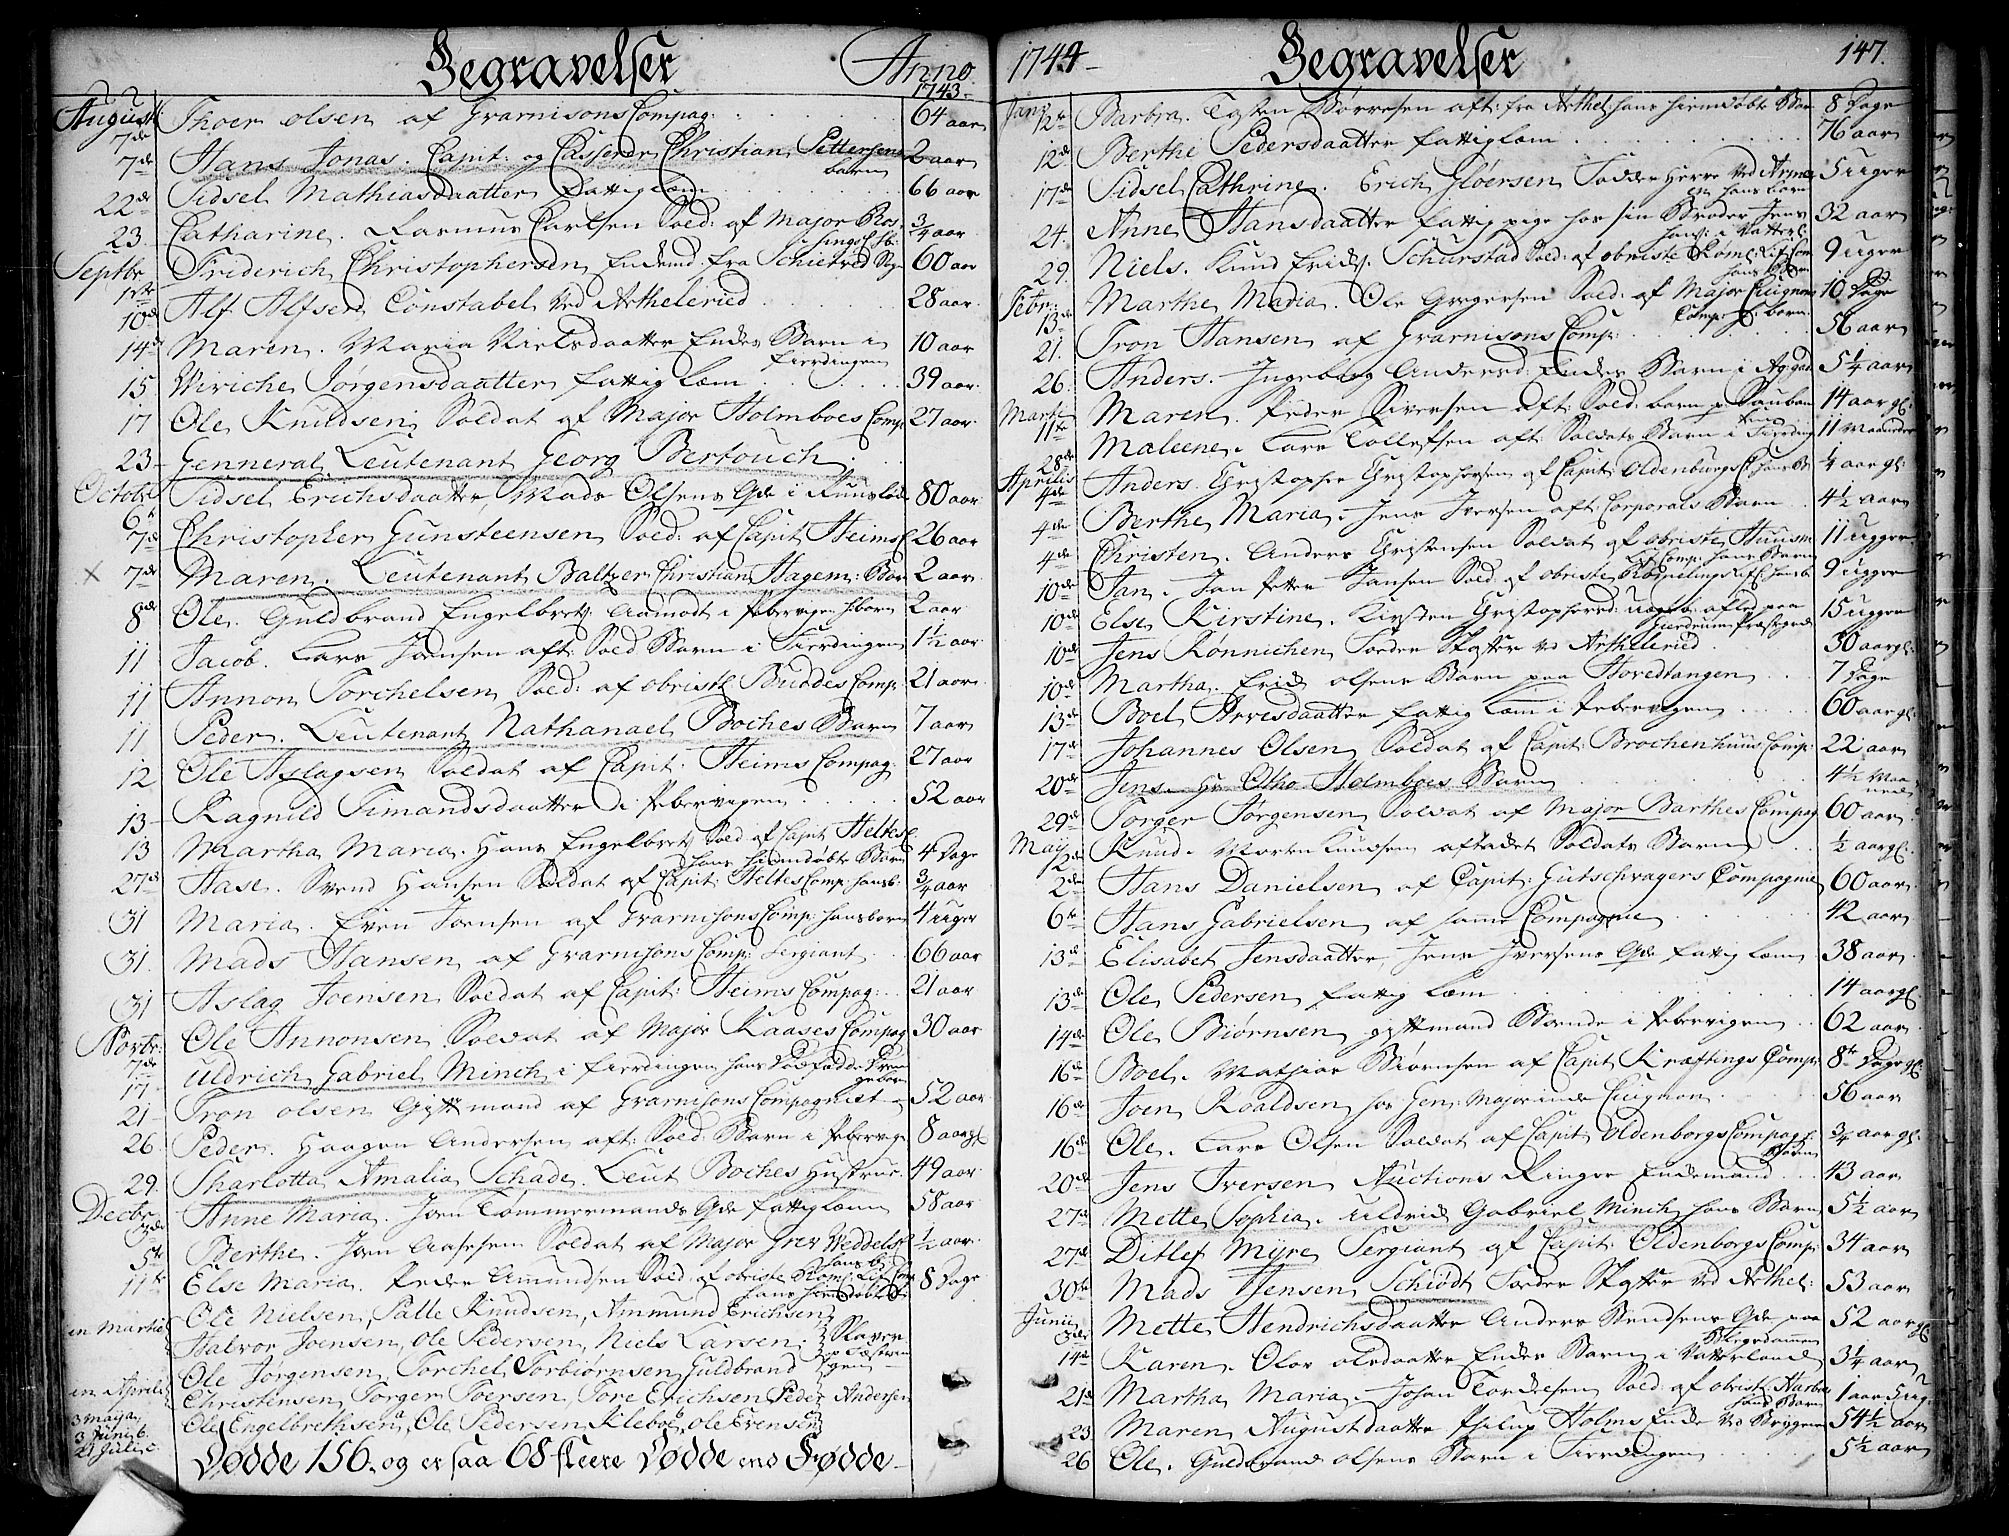 Begravelser Anno 1743
August
7de Thoer olsen af Guarnisons Compag: 64 aar
7de Hans Jonas. Capit: og Casserer Christian Pettersens barn 2 aar
22de Sidsel Mathiasdaatter fattig lem 66 aar
23. Catharine. Rasmus Carlsen Sold: af Major Ros: 3/4 aar
Septbr
1ste Friderich Christophersen Endemd fra 60 aar
10de Alf Alfsen Constabel ved Artheleried 28 aar
14de Maren. Maria Nielsdaatter Enkes Barn i fierdingen 10 aar
15 Wiriche Jørgensdaatter fattig lem 39 aar
17 Ole Knudsen Soldat af Major Holmboes Comp: 27 aar
23 Genneral Leutenant Georg Bertouch
Octobr
6te Sidsel Erichsdaatter, Mads Olsens Gde i 80 aar
7de Christopher Gunsteensen Sold: af Capit Heims C 26 aar
7de Maren. Leutenant Baltzer Christian Hagem: Bar 2 aar
8de Ole. Guldbrand Engelbretz. Aamodt i Pebervigen barn 2 aar
11 Jacob. Lars Jansen aft: Sold Barn i Fierdingen 1½ aar
11 Annon Torchelsen Sold: af obristl Buddes Comp: 21 aar
11 Peder. Leutenant Nathanael Boches Barn 7 aar
12 Ole Aslagsen Soldat af Capit: Heims Compag: 27 aar
13 Ragnild Timandsdaatter i Pebervigen 52 aar
13 Martha Maria. Hans Engelbretz Sold af Capit Heltes C hans hiemdøbte Barn 4 Dage
27de Aase. Svend Hansen Soldat af Capit: Heltes Comp: hans b: 3/4 aar
31 Maria. Even Joensen af Guarnisons Comp: hans barn 4 uger
31. Mads Hansen af Guarnisons Comp: Sergiant 66 aar
31 Aslag Joensen Soldat af Capit: Heims Compag: 21 aar
Novbr:
7de Ole Annonsen Soldat af Major Kaases Compag 30 aar
17 Uldrich Gabriel Minch i fierdingen hans Dødfødde Drengebarn
21 Tron olsen Gift mand af Guarnisons Compagniet 52 aar
26. Peder. Haagen Andersen aft: Sold: Barn i Pebervige 8 aar gl
29. Charlotta Amalia Schade. Leut Boches Hustrue. 49 aar
Decbr
3de Anne Maria. Joen Tømmermands Gde fattig lem 58 aar
5te Berthe. Joen Aasesen Soldat af Major Grev Weddels C hans b: ½ aar
11te Else Maria. Peder Amundsen Sold: af obriste hans hiemdøbte 8 Dage
en Martio Ole Nielsen, Palle Knudsen, Ammund Erichsen
Halvor Joensen, Ole Pedersen, Niels Larsen. Slaver
Ole Jørgensen, Torchel Torbiørnsen, Guldbrand
en Aprili Christensen, Torger Toersen, Tore Erichsen Peder Andersen
3 Maij a, 3 Juni b. 21 Juli c. Ole Engelbrethsen, Ole Pedersen Kleboe, Ole Evensen
Dødde 156, og er saa 68 fleere Dødde end Fødde
1744 Begravelser 147.
Jan:
12te Barbra. Tosten Børresen aft: fra Arthel: hans hiemdøbte Bar 8 Dage
12de Berthe Pedersdaatter fattig lem 76 aar
17de Sidsel Cathrine. Erich Gløersen Fadde Herre ved hans barn 5 uger
24. Anne Hansdaatter fattig pige hos sin Broder Jens Hans: i Vatterl: 32 aar
29. Niels. Knud Erids. Schurstad Sold: af obriste hans barn 9 uger
Febr:
13de Marthe Maria. Ole Gregersen Sold: af Major Cuignons Comp: barn 10 Dage
21. Tron Hansen af Guarnisons Comp: 56 aar
26. Anders. Ingeborg Andersd: Enkes Barn i 5¼ aar
Marti
11te Maren. Peder Siversen aft: Sold: barn 14 aar gl:
28de Maleene. Lars Tollefsen aft: Soldats Barn i Fierding 11 Maaneder
Aprilis
4de Anders. Christopher Christophersen af Capit: Oldenburgs C: hans B: ¼ aar gl:
4de Berthe Maria. Jens Iversen aft: Corporals Barn 4½ aar
4de Christen. Anders Christensen Soldat af obriste Huusm Lif Comp: hans Barn 11 ugger
10de Jan. Jan Petter Jansen Sold: af obriste 9 ugger
10de Else Kirstine. Kirsten Christophersd: uægte: afled paa Gierdrums Præstegield 15 ugger
10de Jens Rønnichen Toeder Skytter ved Artheleried 30 aar gl:
10de Martha. Erid olsens Barn paa Hovedtangen 7 Dage
13de Boel Arvesdaatter fattig lem i Pebervigen 60 aar gl:
17de Johannes Olsen Soldat af Capit: Brochenhuus Comp: 22 aar
20de Jens. Hr Otho Holmboes Barn 4½ Maaneds
29de Torger Jørgensen Soldat af Major Barthes Compag 60 aar
May
2de Knud. Morten Knudsen aftadet Soldats Barn ½ aar gl.
2de Hans Danielsen af Capit: Gutschvagers Compagnie 60 aar
6te Hans Gabrielsen af samme Compagnie 42 aar
13de Elisabet Jensdaatter, Jens Iversens Gde fattig lem 38 aar
13de Ole Pedersen fattig lem 14 aar gl.
14de Ole Biørnsen giftmand Bænde i Pebervigen 62 aar
16de Boel. Mathias Biørnsen af Capit Kræftings Comp: 8te Dage gl
16de Joen Roaldsen hos Gen: Majorinde Cuignon 56 aar
16de Ole. Lars Olsen Soldat af Capit: Oldenborgs Compag: Barn 3/4 aar gl:
20de Jens Iversen Auctions Ringer Endemand 43 aar
27de Mette Sophia. Uldrid Gabriel Minch hans Barn 5½ aar
27de Ditlef Myre Sergiant af Capit: Oldenborgs Comp: 34 aar
30te Mads Jensen Schiødt Toeder Skytter ved Arthel: 53 aar
Junii
3de Mette Hendrichsdaatter Anders Svendsens Gde paa 52 aar gl
14de Karen. Olor olsdaatter Enkes Barn i Vatterland 3¼ aar
21de Martha Maria. Johan Tordesen Sold: af obristl. hans Barn 1 aar 5 ug:
23 Maren Augustdaatter Philup Holms Enke ved Bryggen 54½ aar
26 Ole. Guldbrand olsens Barn i Fierdingen 5½ aar